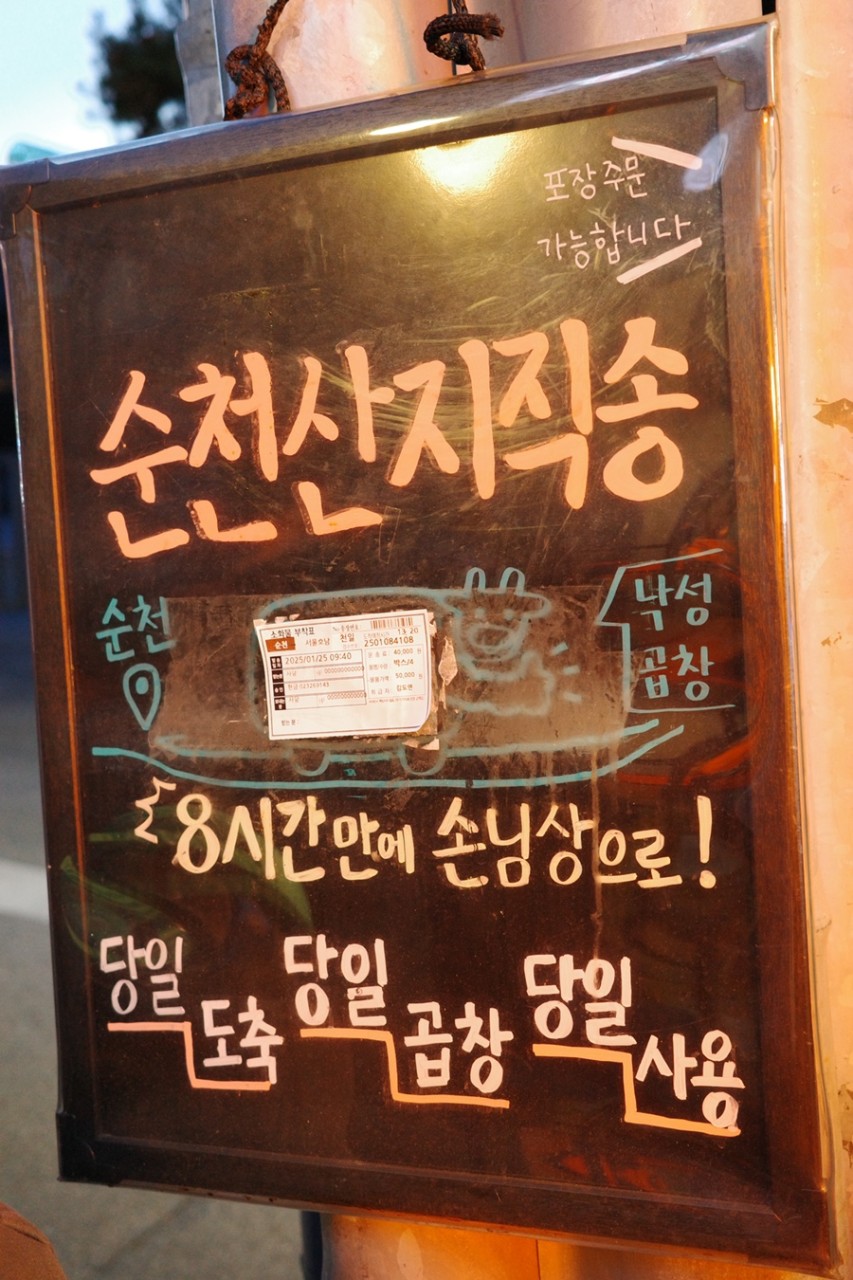 포장주문
가능합니다
순천산지직송
순천
낙성
곱창
소화물 부착표
13:20
순천 서울호남 천일 2501084108
2025/01/25 09:40
40,000
박스/4
50,000
8시간만에 손님상으로!
당일
도축
당일
곱창
당일
사용